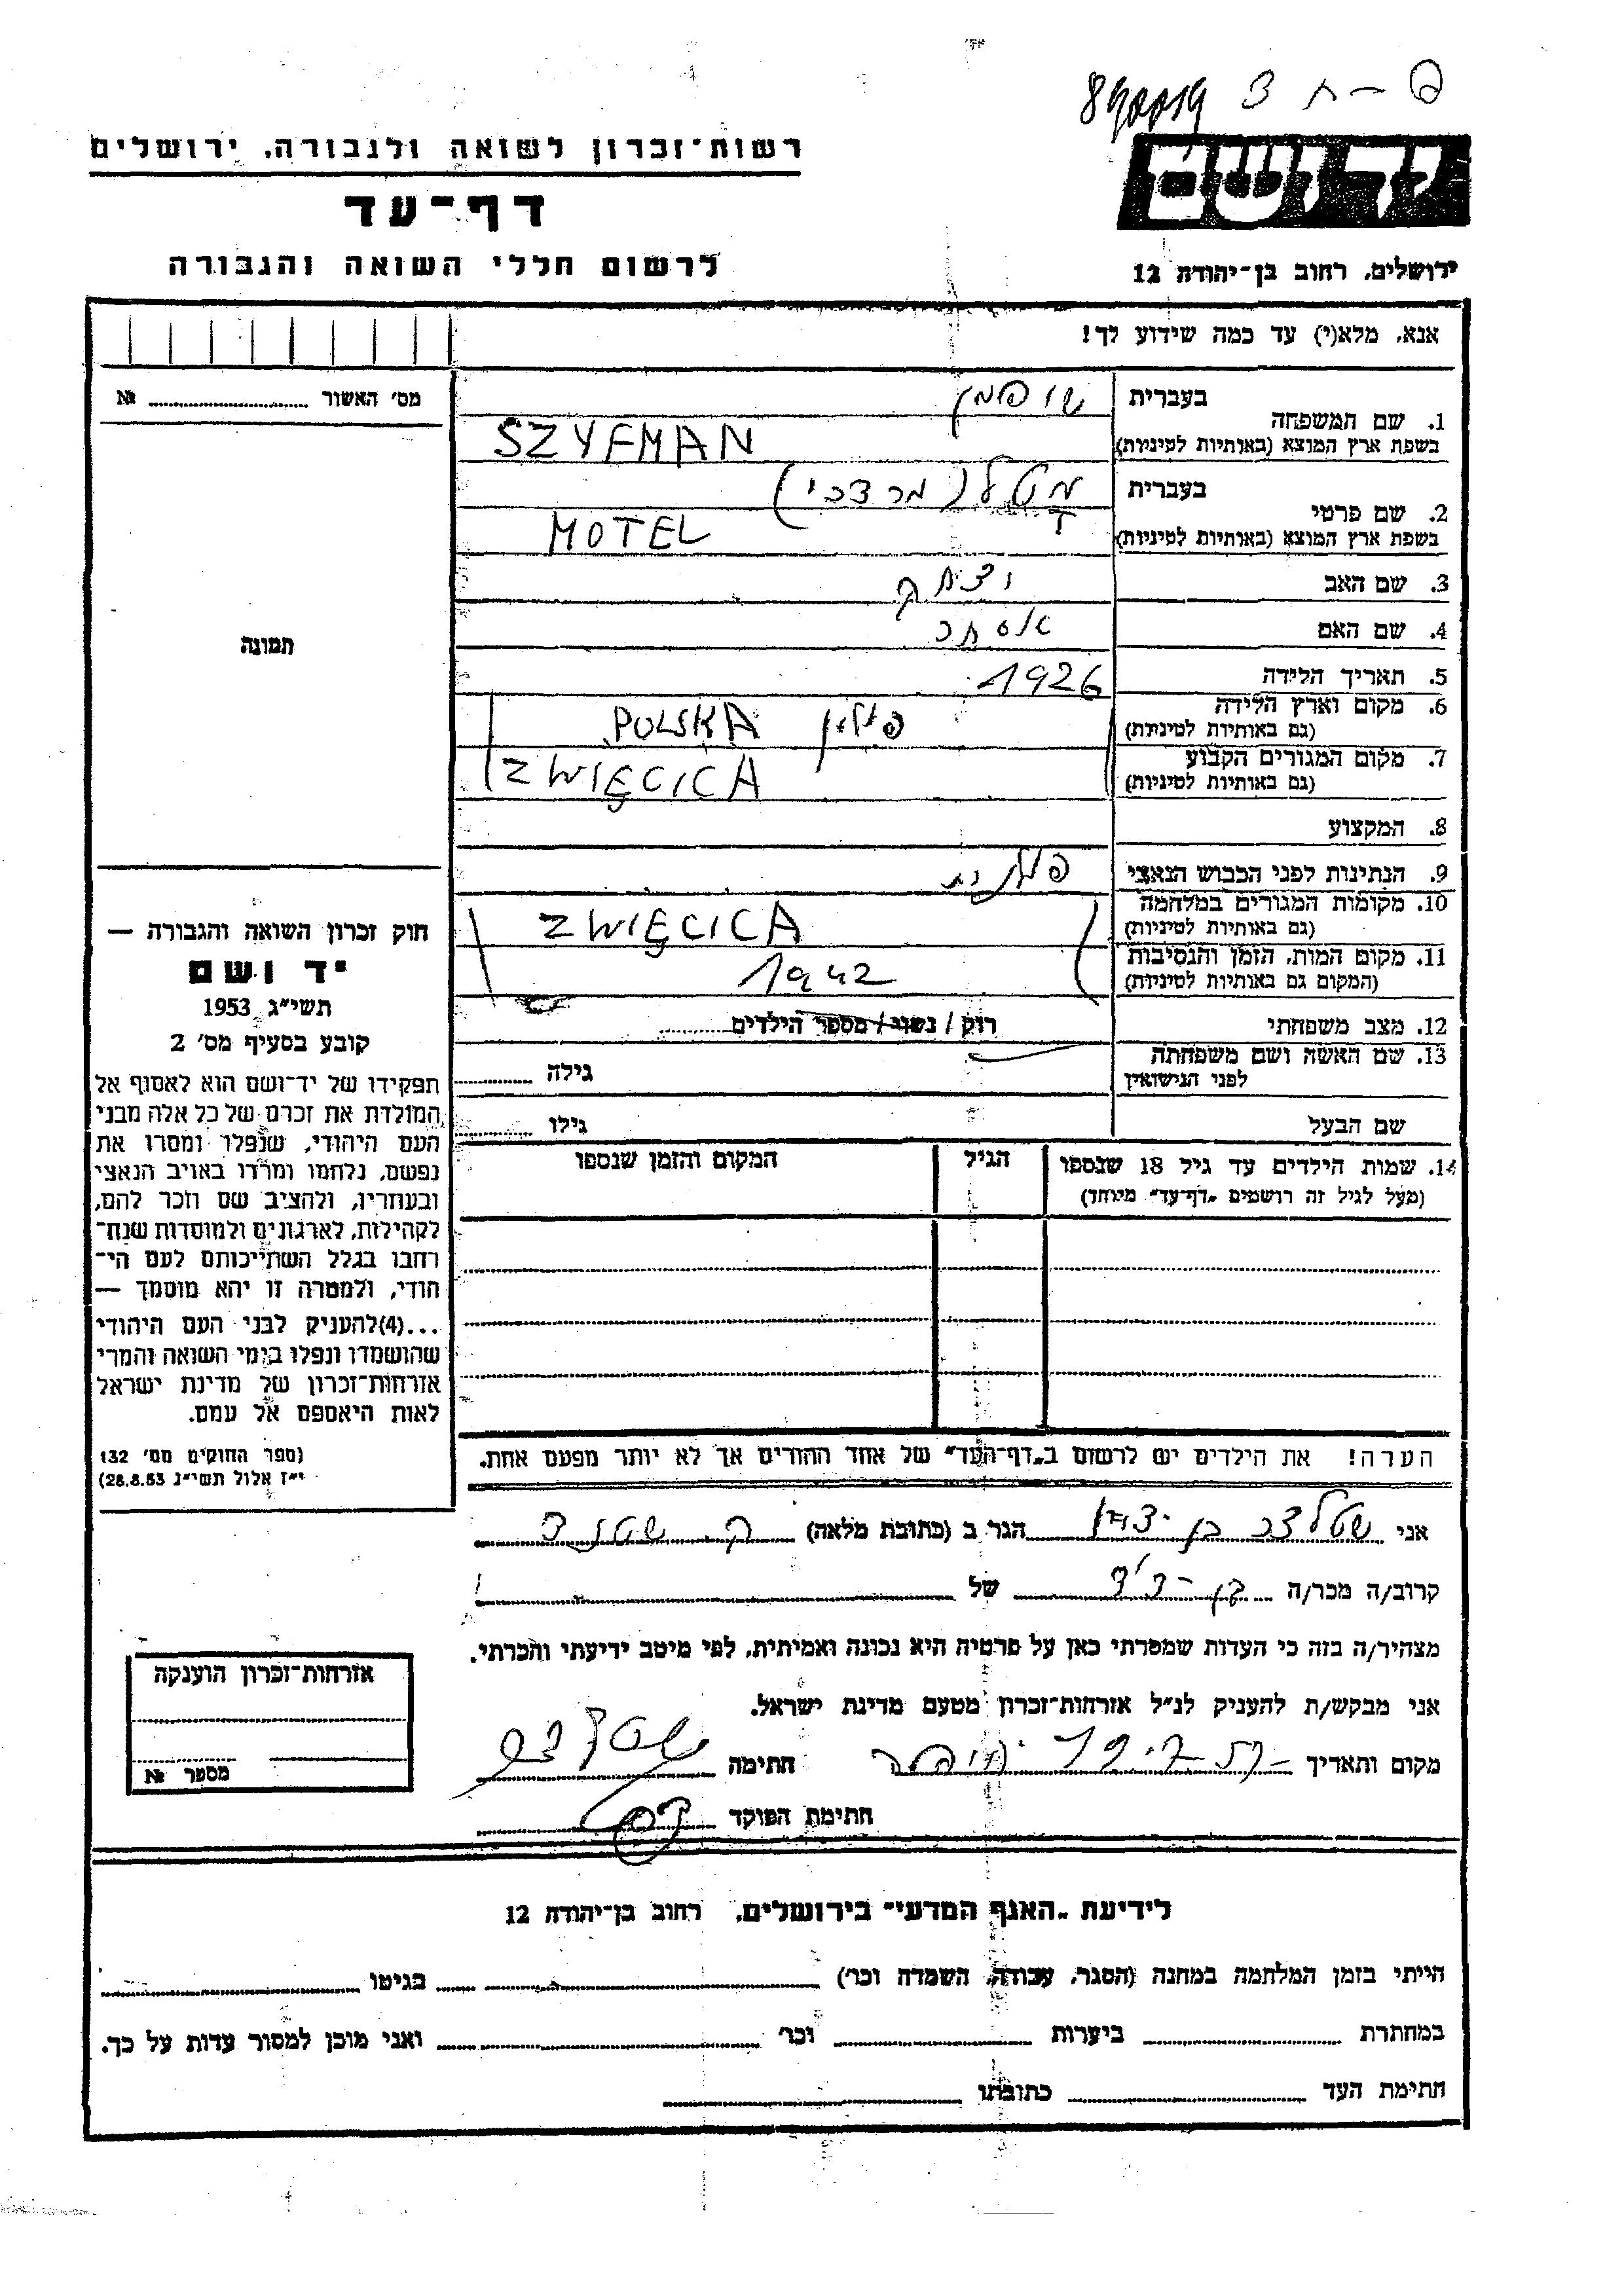 פ - ח 3
רשות־זכרון לשואה ולגבורה, ירושלים
יד ושם
דף־עד
לרשום חללי השואה והגבורה
ירושלים, רחוב בן־יהודה 12
אנא, מלא(י) עד כמה שידוע לך!
מס׳ האשור № 
1. שם המשפחה
בעברית שופמן
בשפת ארץ המוצא (באותיות לטיניות) SZYFMAN
2. שם פרטי
בעברית מטל (מרדכי)
בשפת ארץ המוצא (באותיות לטיניות) MOTEL
3. שם האב יצחק
4. שם האם אסתר
5. תאריך הלידה 1926
6. מקום וארץ הלידה
(גם באותיות לטיניות) POLSKA פולין
7. מקום המגורים הקבוע
(גם באותיות לטיניות) ZWIĘCICA
8. המקצוע
9. הנתינות לפני הכבוש הנאצי פולנית
10. מקומות המגורים במלחמה
(גם באותיות לטיניות) ZWIĘCICA
11. מקום המות, הזמן והנסיבות
(המקום גם באותיות לטיניות) 1942
12. מצב משפחתי רוק / נשוי / מספר הילדים
13. שם האשה ושם משפחתה
לפני הנישואין
גילה
שם הבעל
גילו
14. שמות הילדים עד גיל 18 שנספו
(מעל לגיל זה רושמים „דף־עד״ מיוחד)
הגיל
המקום והזמן שנספו
תמונה
חוק זכרון השואה והגבורה —
יד ושם
תשי״ג 1953
קובע בסעיף מס׳ 2
תפקידו של יד־ושם הוא לאסוף אל
המולדת את זכרם של כל אלה מבני
העם היהודי, שנפלו ומסרו את
נפשם, נלחמו ומרדו באויב הנאצי
ובעוזריו, ולהציב שם וזכר להם,
לקהילות, לארגונים ולמוסדות שנח־
רבו בגלל השתייכותם לעם הי־
הודי, ולמטרה זו יהא מוסמך —
...(4) להעניק לבני העם היהודי
שהושמדו ונפלו בימי השואה והמרי
אזרחות־זכרון של מדינת ישראל
לאות היאספם אל עמם.
(ספר החוקים מס׳ 132
י״ז אלול תשי״ג 28.8.53)
הערה! את הילדים יש לרשום ב„דף־העד״ של אחד ההורים אך לא יותר מפעם אחת.
אני הגר ב (כתובת מלאה)
קרוב/ה מכר/ה בן-דוד של
מצהיר/ה בזה כי העדות שמסרתי כאן על פרטיה היא נכונה ואמיתית, לפי מיטב ידיעתי והכרתי.
אני מבקש/ת להעניק לנ״ל אזרחות־זכרון מטעם מדינת ישראל.
מקום ותאריך חיפה חתימה
חתימת הפוקד
אזרחות־זכרון הוענקה
מספר №
לידיעת „האגף המדעי״ בירושלים, רחוב בן־יהודה 12
הייתי בזמן המלחמה במחנה (הסגר, עבודה, השמדה וכו׳) בגיטו
במחתרת ביערות וכו׳ ואני מוכן למסור עדות על כך.
חתימת העד כתובתו